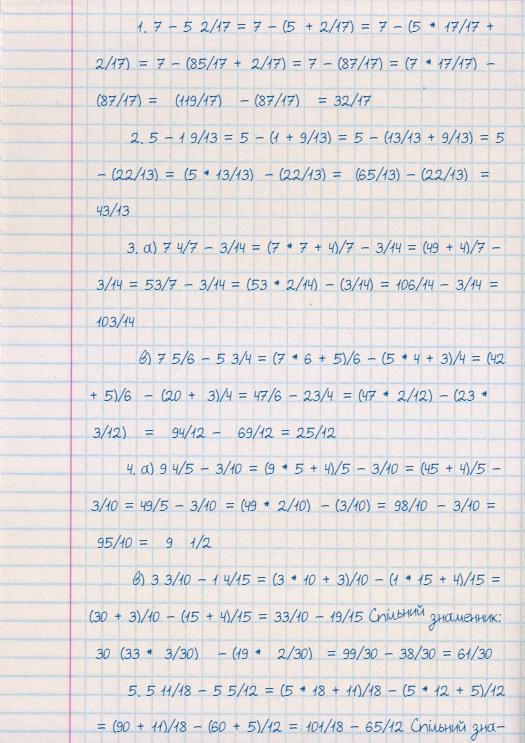 1. 7 – 5 2/17 = 7 – (5 + 2/17) = 7 – (5 * 17/17 +
2/17) = 7 – (85/17 + 2/17) = 7 – (87/17) = (7 * 17/17) –
(87/17) = (119/17) – (87/17) = 32/17
2. 5 – 1 9/13 = 5 – (1 + 9/13) = 5 – (13/13 + 9/13) = 5
– (22/13) = (5 * 13/13) – (22/13) = (65/13) – (22/13) =
43/13
3. а) 7 4/7 – 3/14 = (7 * 7 + 4)/7 – 3/14 = (49 + 4)/7 –
3/14 = 53/7 – 3/14 = (53 * 2/14) – (3/14) = 106/14 – 3/14 =
103/14
в) 7 5/6 – 5 3/4 = (7 * 6 + 5)/6 – (5 * 4 + 3)/4 = (42
+ 5)/6 – (20 + 3)/4 = 47/6 – 23/4 = (47 * 2/12) – (23 *
3/12) = 94/12 – 69/12 = 25/12
4. а) 9 4/5 – 3/10 = (9 * 5 + 4)/5 – 3/10 = (45 + 4)/5 –
3/10 = 49/5 – 3/10 = (49 * 2/10) – (3/10) = 98/10 – 3/10 =
95/10 = 9 1/2
в) 3 3/10 – 1 4/15 = (3 * 10 + 3)/10 – (1 * 15 + 4)/15 =
(30 + 3)/10 – (15 + 4)/15 = 33/10 – 19/15 Спільний знаменник:
30 (33 * 3/30) – (19 * 2/30) = 99/30 – 38/30 = 61/30
5. 5 11/18 – 5 5/12 = (5 * 18 + 11)/18 – (5 * 12 + 5)/12
= (90 + 11)/18 – (60 + 5)/12 = 101/18 – 65/12 Спільний зна-